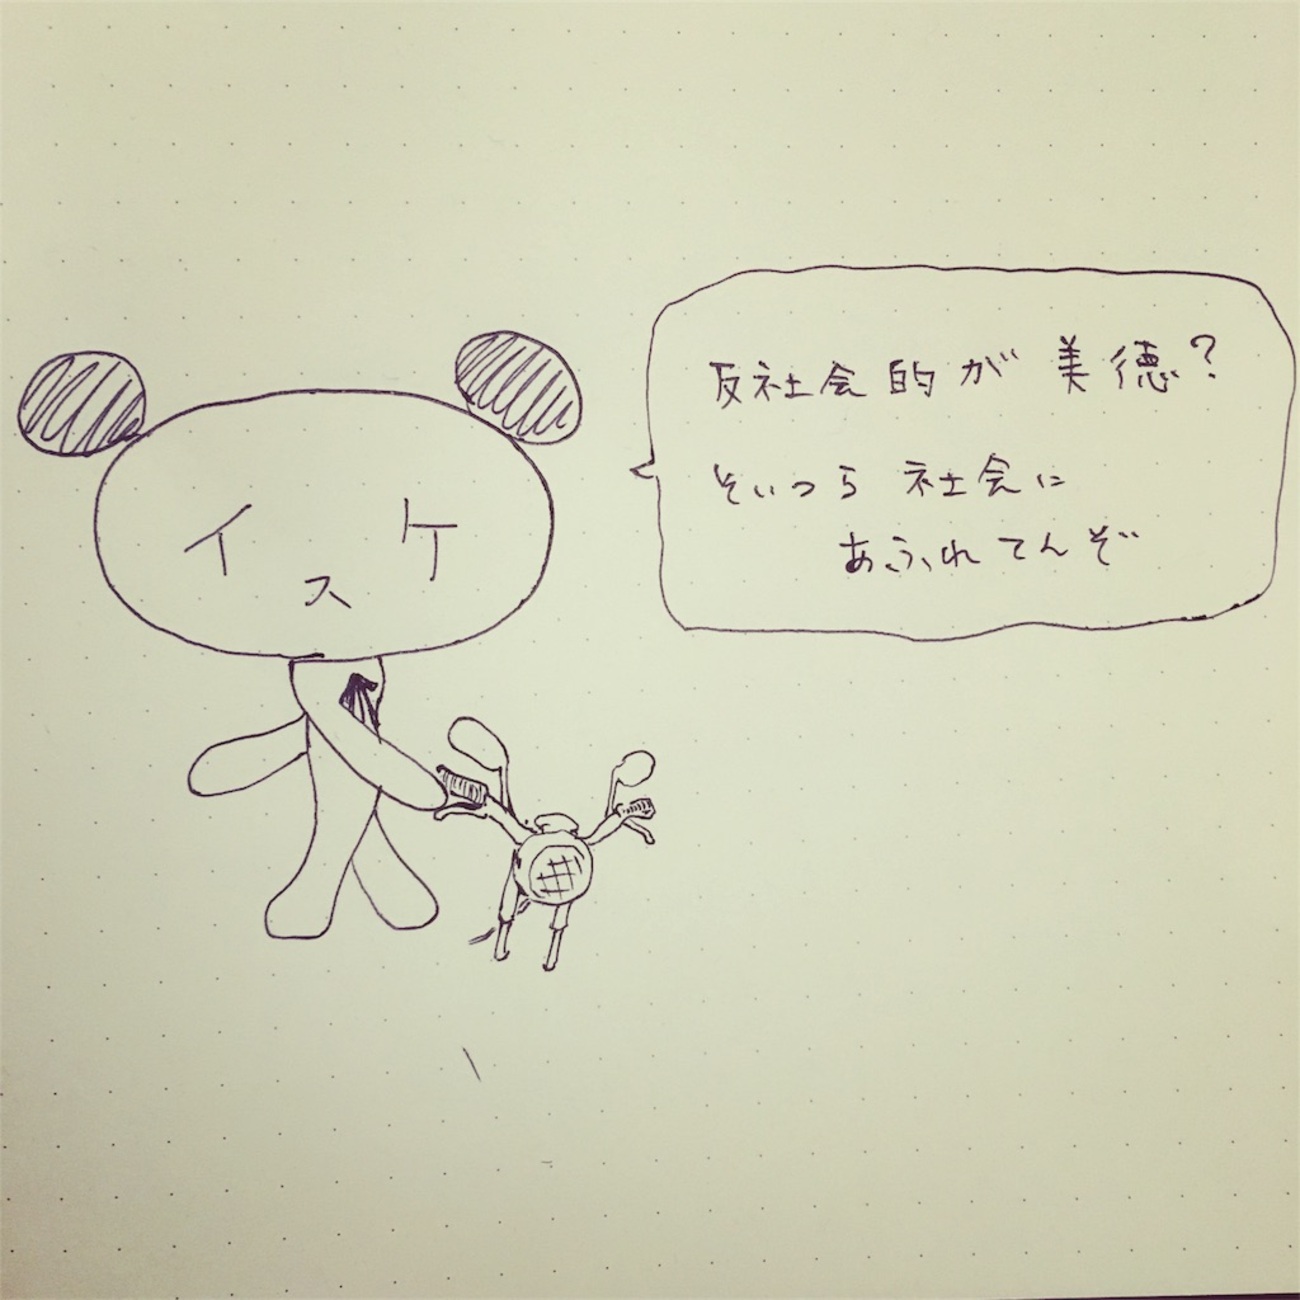 反社会的が美徳?
そいつら社会に
あふれてんぞ
イケ
ス